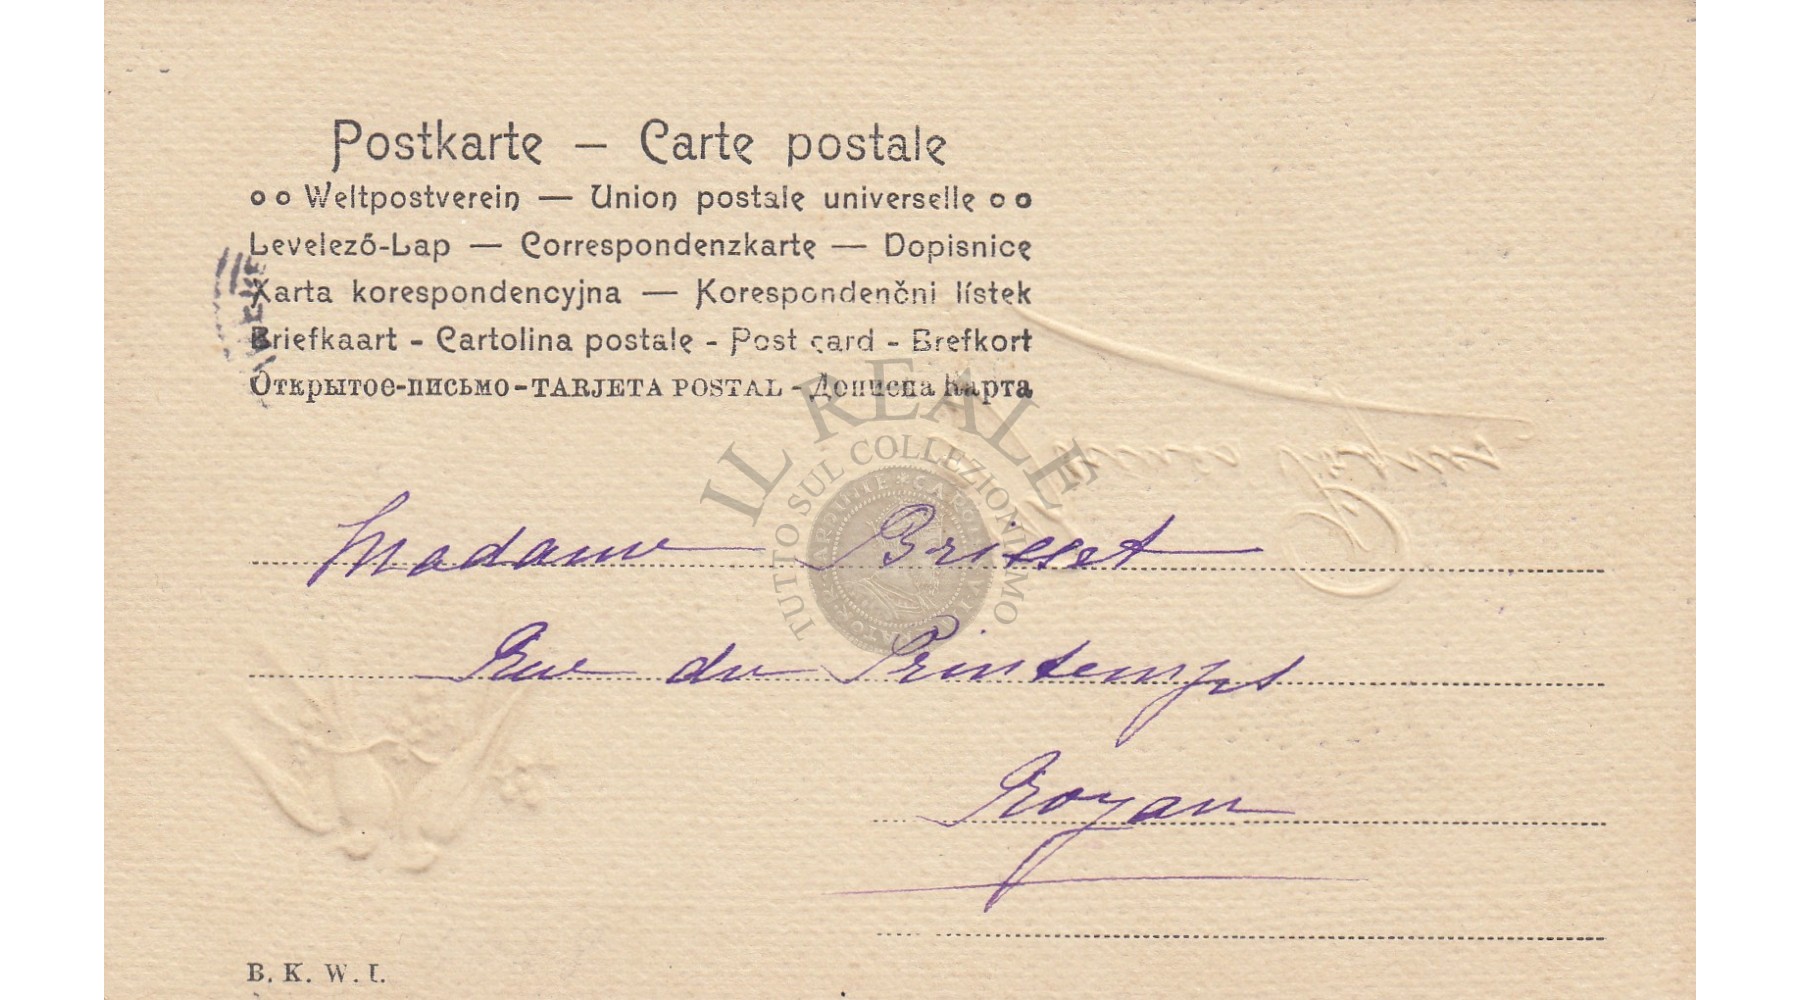 Postkarte – Carte postale
Weltpostverein — Union postale universelle
Levelező-Lap — Correspondenzkarte — Dopisnice
Karta korespondencyjna — Korespondenčni lístek
Briefkaart - Cartolina postale - Post card - Brefkort
Открытое-письмо-TARJETA POSTAL - Дописна Карта
IL REALE
TUTTO SUL COLLEZIONISMO
Madame Brisset
Rue du Printemps
Royan
B. K. W. I.